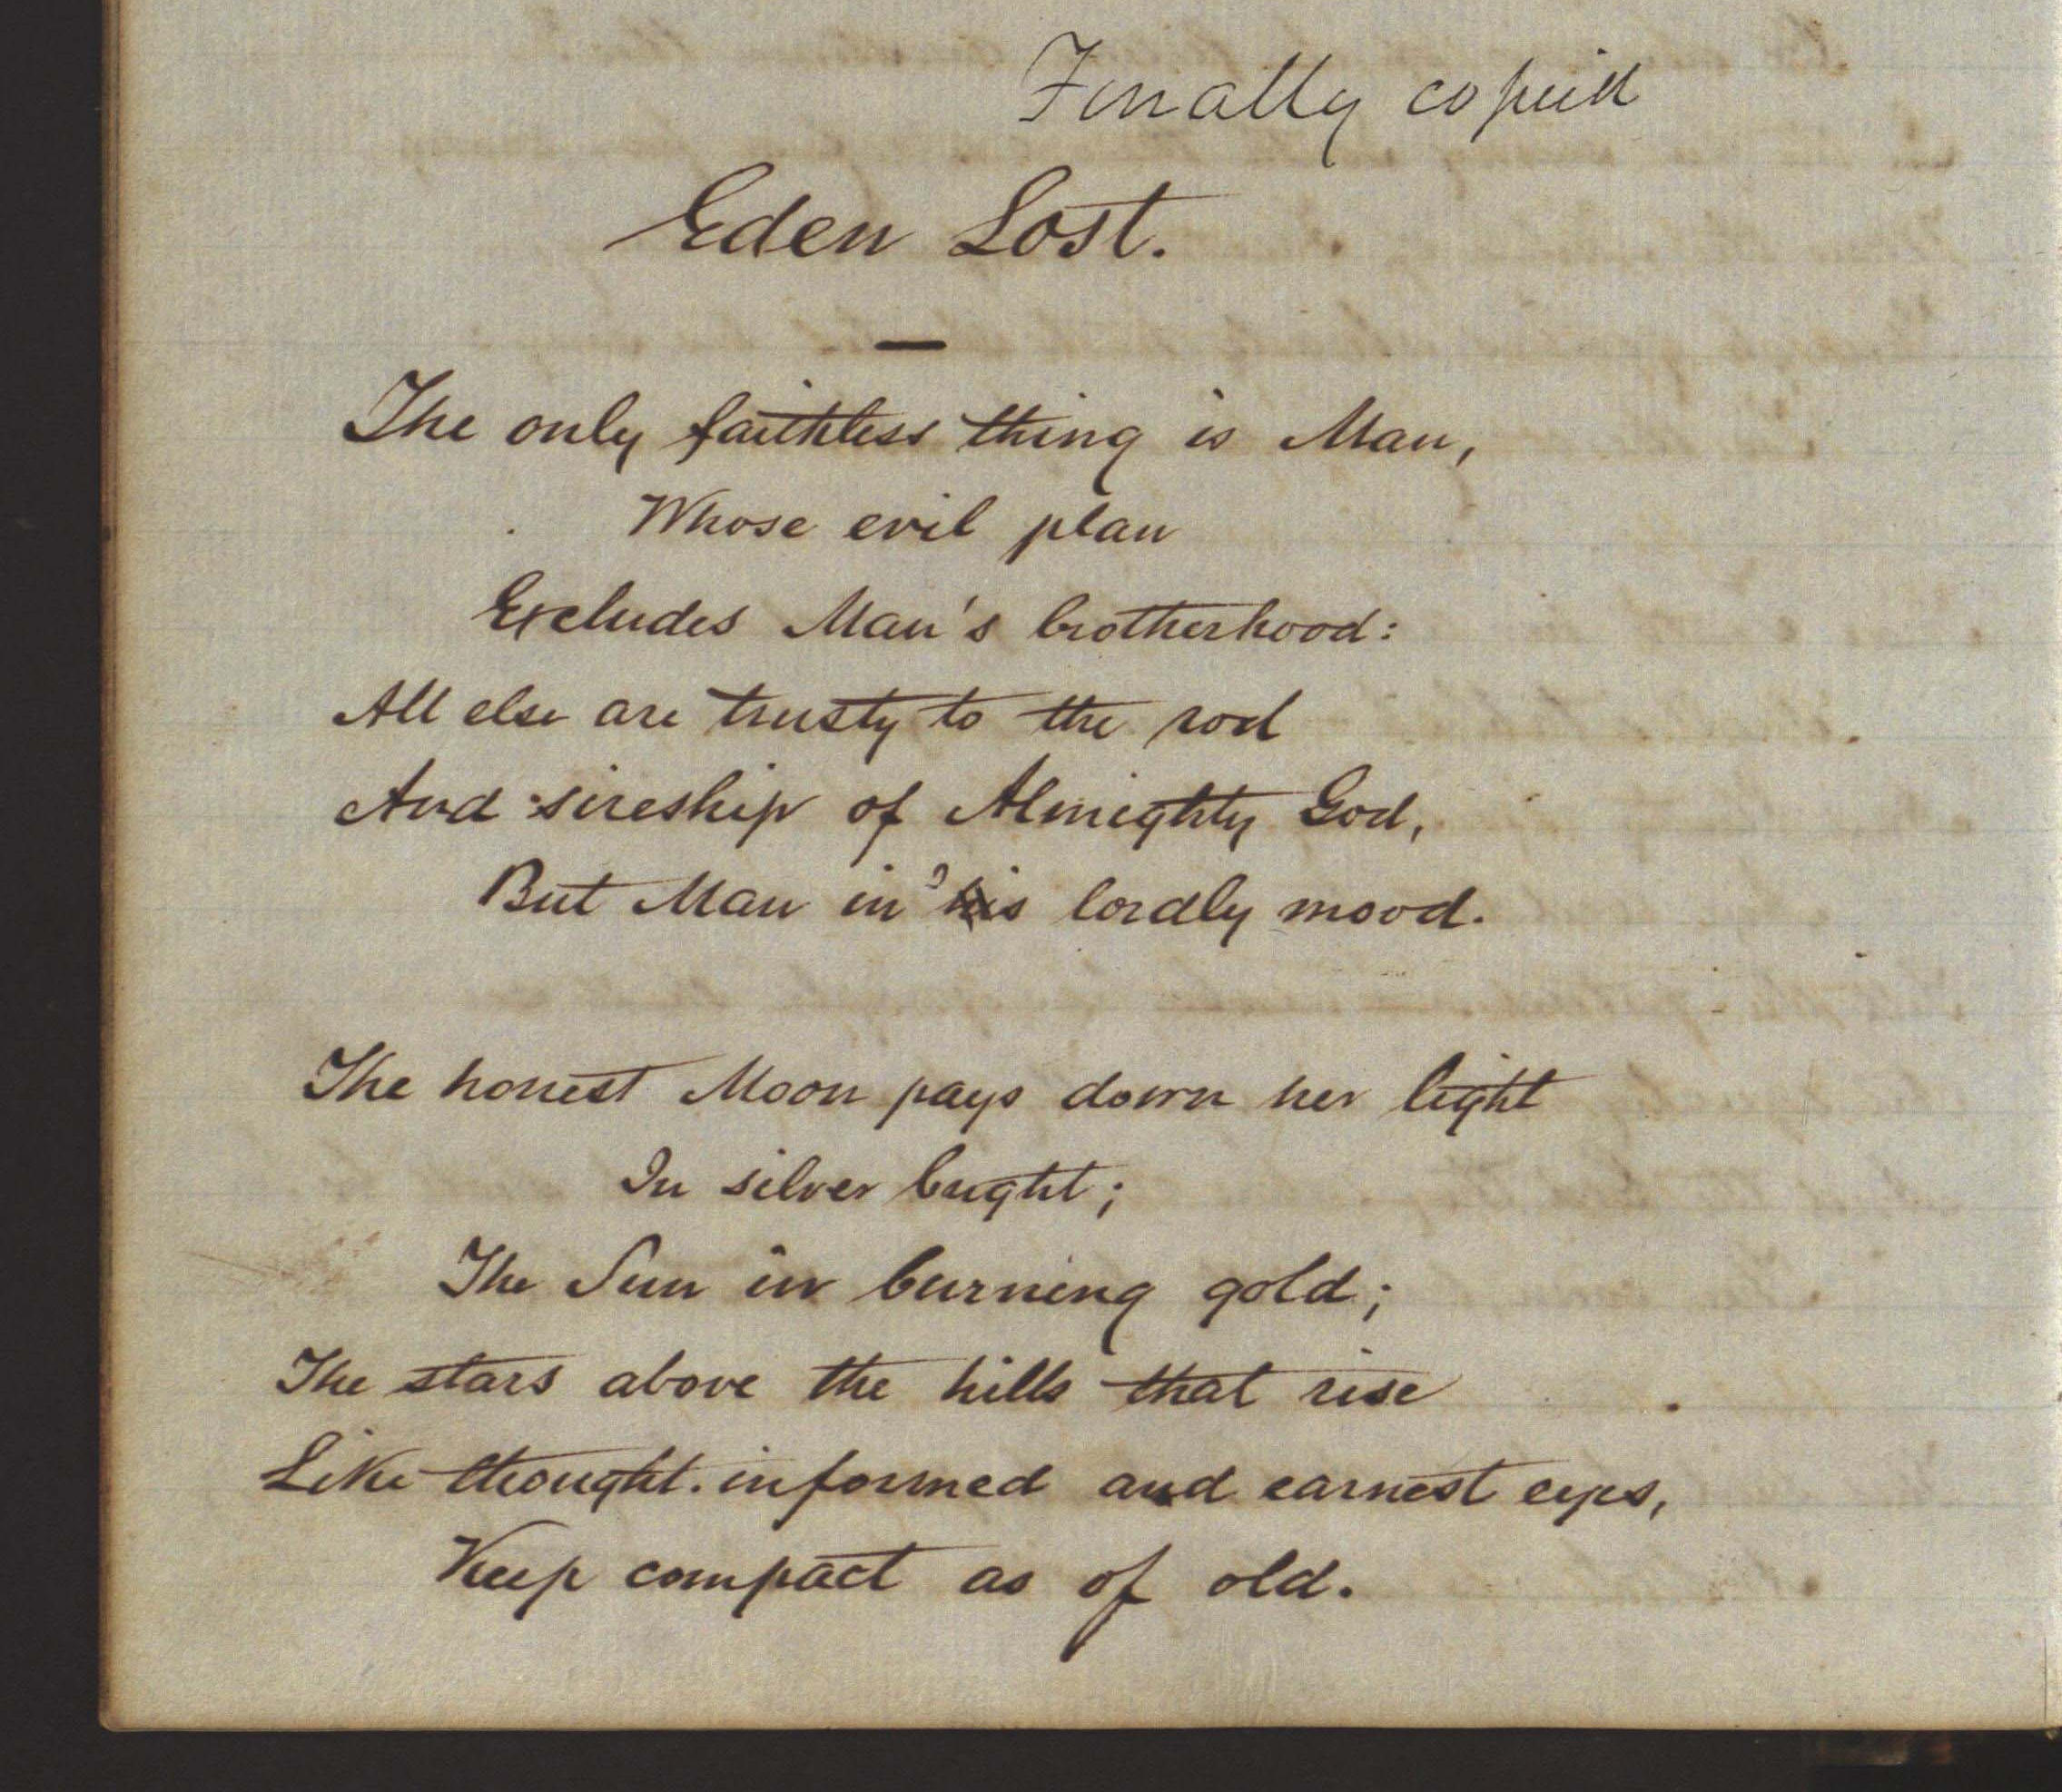 Finally copied
Eden Lost.
The only faithless thing is Man,
Whose evil plan
Excludes Man's brotherhood:
All else are trusty to the rod
And sireship of Almighty God,
But Man in 's lordly mood.
The honest Moon pays down her light
In silver bright;
The Sun in burning gold;
The stars above the hills that rise
Like thought-informed and earnest eyes,
Keep compact as of old.